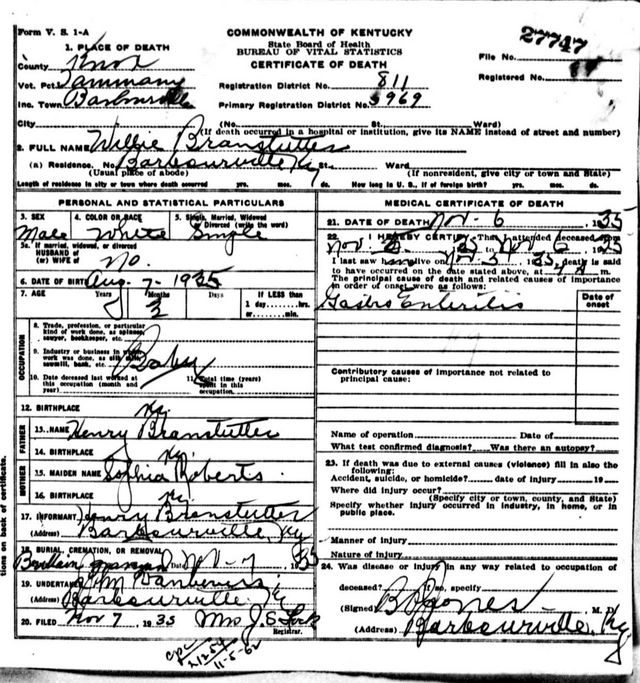 Form V. S. 1-A
COMMONWEALTH OF KENTUCKY
State Board of Health
BUREAU OF VITAL STATISTICS
CERTIFICATE OF DEATH
27747
File No.
Registered No.
1. PLACE OF DEATH
County Knox
Vot. Pct. Tammany
Inc. Town Barbourville
Registration District No. 811
Primary Registration District No. 5969
City (No. St. Ward)
(If death occurred in a hospital or institution, give its NAME instead of street and number)
2. FULL NAME Willie Branstutter
(a) Residence. No. Barbourville Ky. St. Ward
(Usual place of abode) (If nonresident, give city or town and State)
Length of residence in city or town where death occurred yrs. mos. ds. How long in U. S., if of foreign birth? yrs. mos. ds.
PERSONAL AND STATISTICAL PARTICULARS
3. SEX 4. COLOR OR RACE 5. Single, Married, Widowed or Divorced (write the word)
Male White Single
5a. If married, widowed, or divorced
HUSBAND of
(or) WIFE of No.
6. DATE OF BIRTH Aug. 7 - 1935
7. AGE Years Months Days If LESS than
3 1 day......hrs.
or......min.
OCCUPATION
8. Trade, profession, or particular kind of work done, as spinner, sawyer, bookkeeper, etc.
9. Industry or business in which work was done, as silk mill, sawmill, bank, etc.
Baby
10. Date deceased last worked at this occupation (month and year)
11. Total time (years) spent in this occupation.
12. BIRTHPLACE Ky.
FATHER
13. NAME Henry Branstutter
14. BIRTHPLACE Ky.
MOTHER
15. MAIDEN NAME Sophia Roberts.
16. BIRTHPLACE Ky.
17. INFORMANT Henry Branstutter
(Address) Barbourville, Ky
18. BURIAL, CREMATION, OR REMOVAL
Date Nov - 7 1935
19. UNDERTAKER
(Address) Barbourville, Ky
20. FILED Nov 7 1935 Mrs J. S. Lock
Registrar.
11-5-62
tions on back of certificate.
MEDICAL CERTIFICATE OF DEATH
21. DATE OF DEATH Nov - 6 1935
22. I HEREBY CERTIFY, That I attended deceased from
Nov. 35 to Nov 6 35
I last saw alive on Nov 5 1935, death is said
to have occurred on the date stated above, at m.
The principal cause of death and related causes of importance
in order of onset were as follows:
Date of onset
Gastro Enteritis
Contributory causes of importance not related to
principal cause:
Name of operation Date of
What test confirmed diagnosis? Was there an autopsy?
23. If death was due to external causes (violence) fill in also the
following:
Accident, suicide, or homicide? date of injury 19
Where did injury occur?
(Specify city or town, county, and State)
Specify whether injury occurred in industry, in home, or in
public place.
Manner of injury
Nature of injury
24. Was disease or injury in any way related to occupation of
deceased? If so, specify
(Signed) Jones M. D.
(Address) Barbourville, Ky